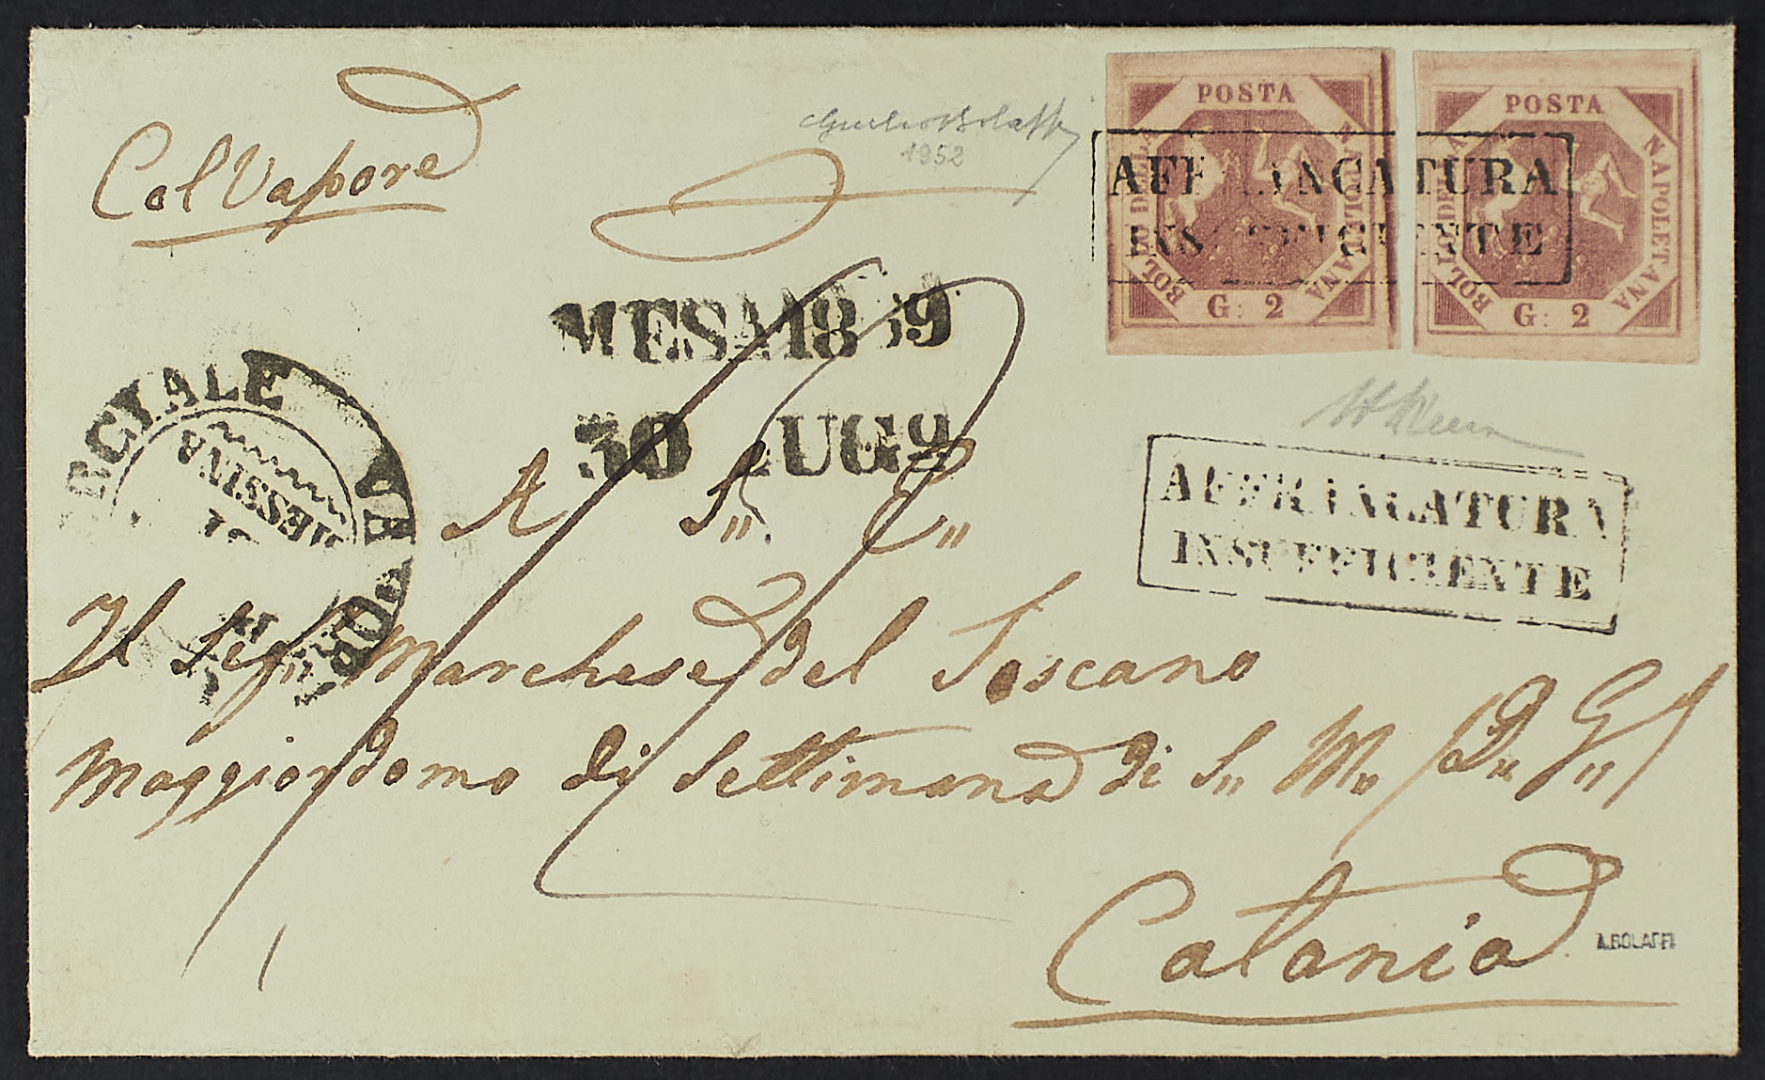 Col Vapore
Giulio Bolaffi
1952
POSTA
NAPOLETANA
BOLLO DELLA
G. 2
POSTA
NAPOLETANA
BOLLO DELLA
G. 2
AFFRANCATURA
INSUFFICIENTE
MESA 1859
30 LUGO
MESSINA
AFFRANCATURA
INSUFFICIENTE
A S,, E,,
Il Sigr Marchese del Toscano
Maggiordomo di Settimana di S,, M,, (D,, G,,)
Catania
A.BOLAFFI